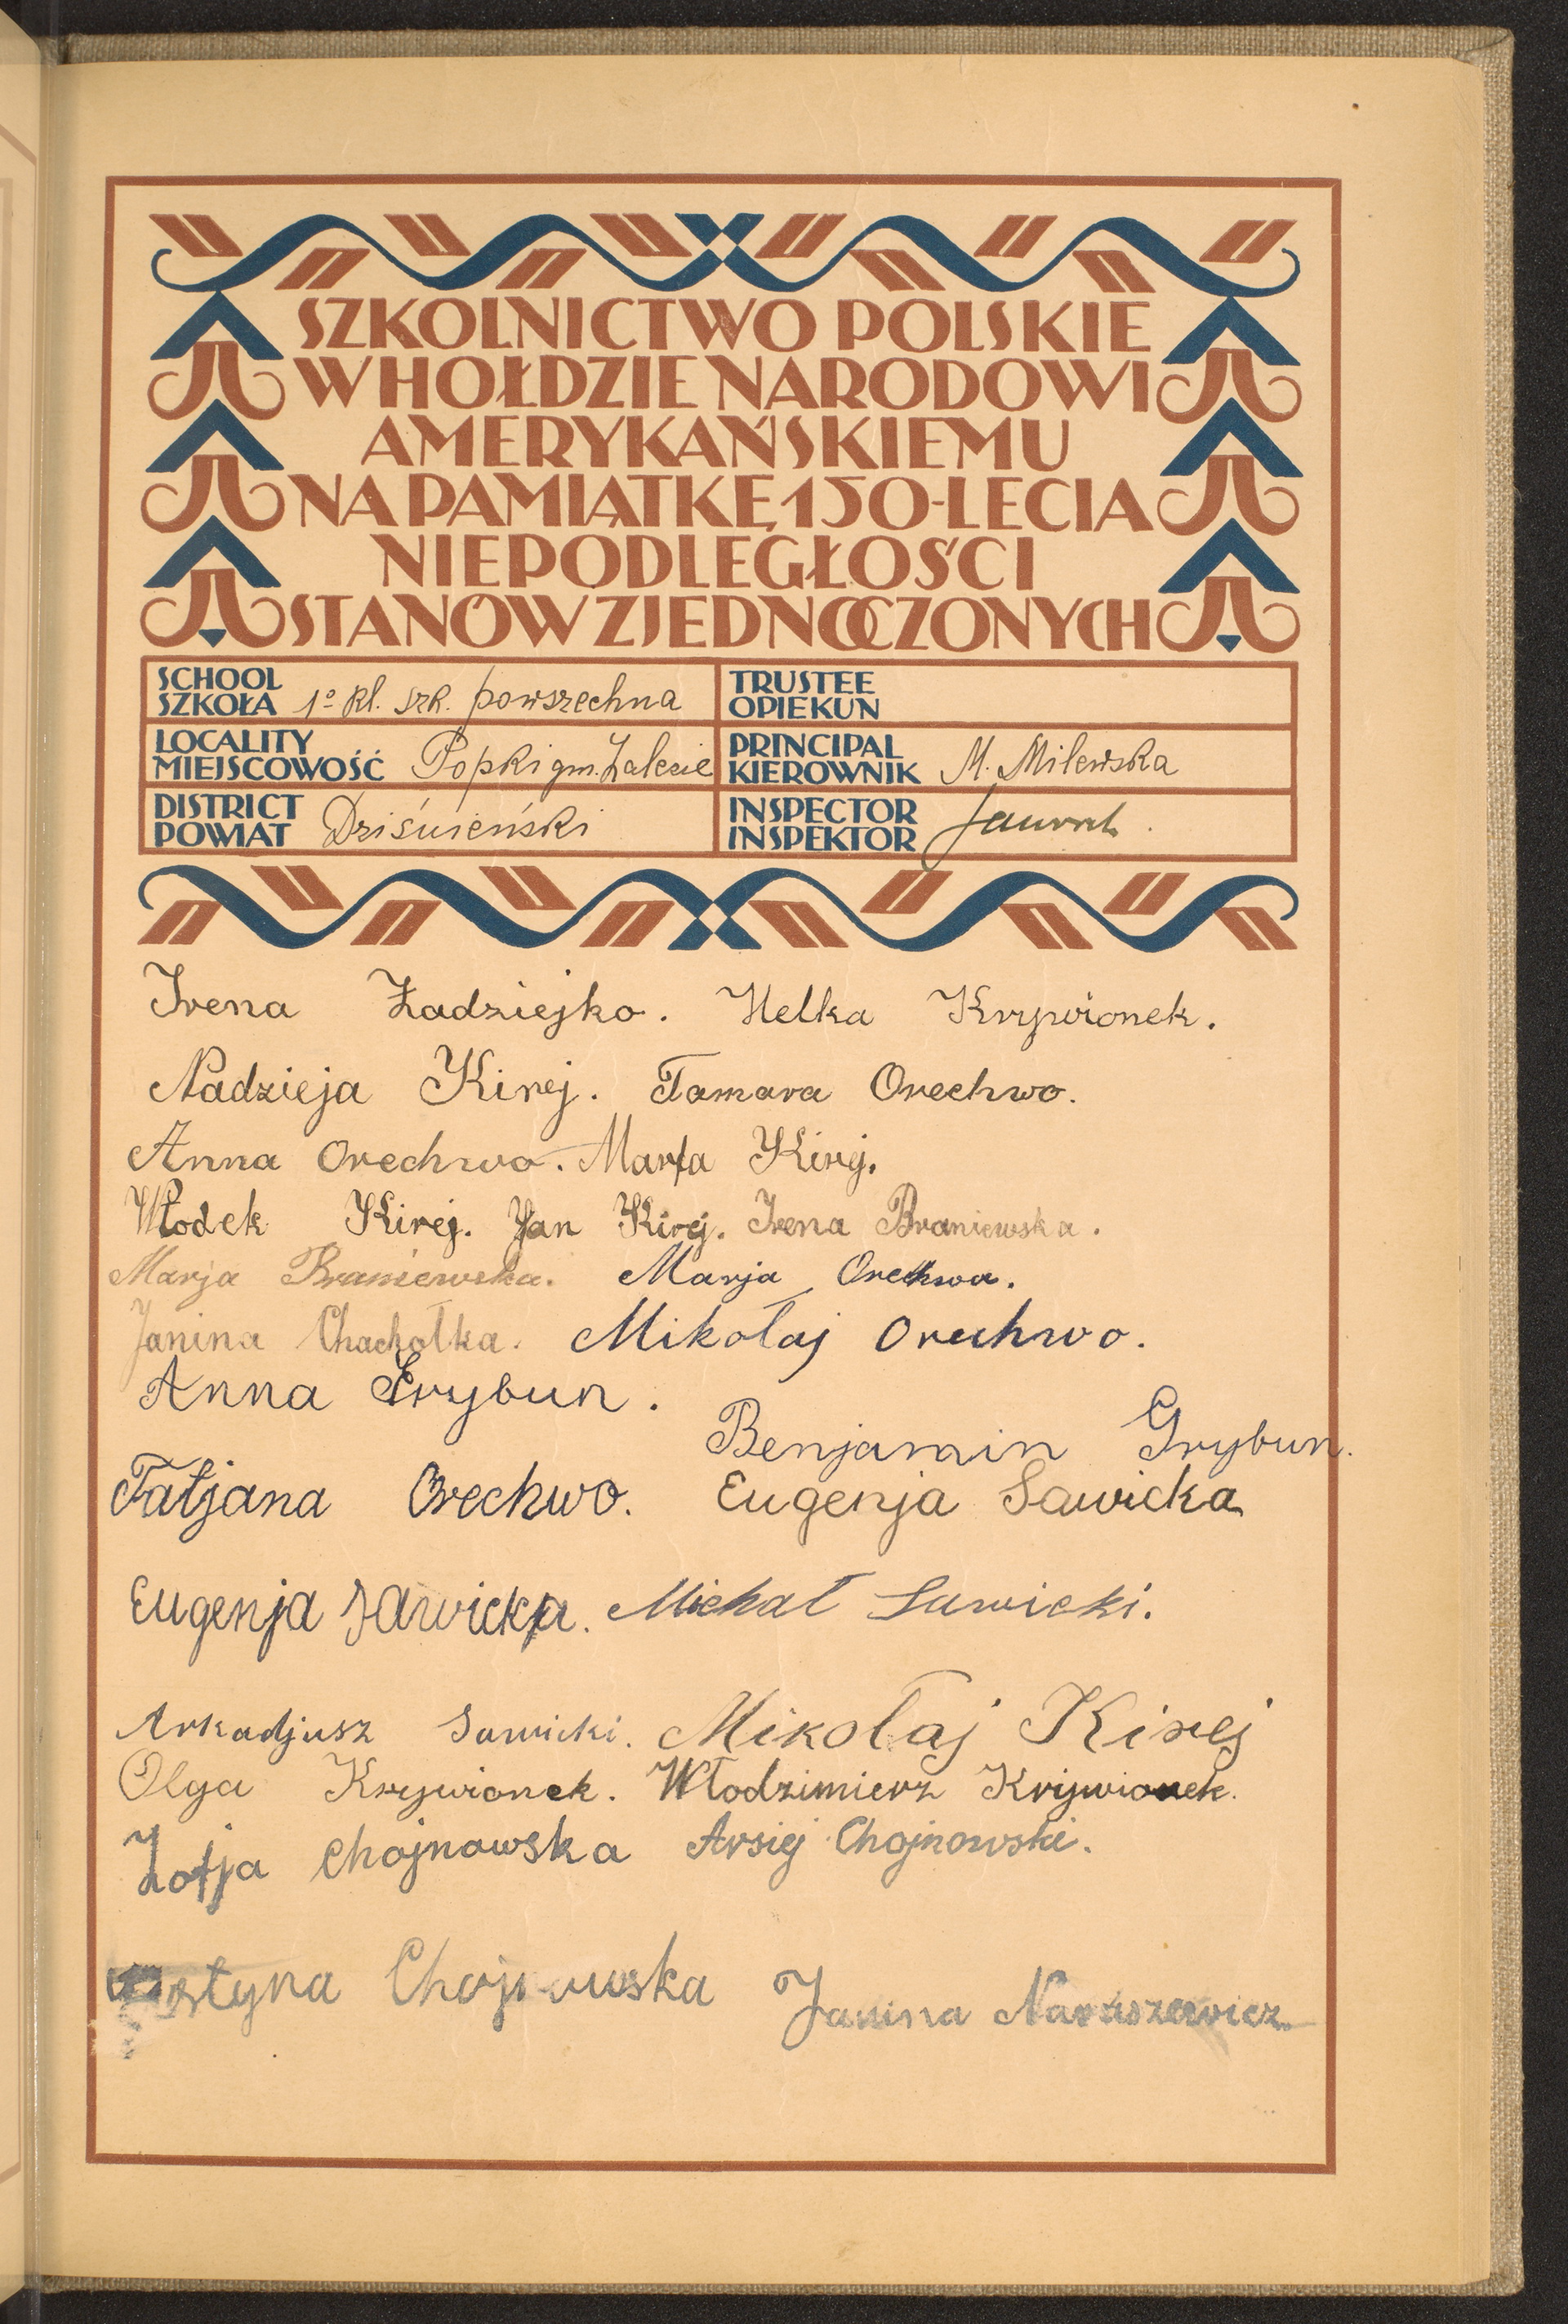 SZKOLNICTWO POLSKIE
W HOŁDZIE NARODOWI
AMERYKAŃSKIEMU
NA PAMIĄTKĘ 150-LECIA
NIEPODLEGŁOŚCI
STANÓW ZJEDNOCZONYCH
SCHOOL
SZKOŁA 1º kl. szk. powszechna
TRUSTEE
OPIEKUN
LOCALITY
MIEJSCOWOŚĆ Popki gm. Zalesie
PRINCIPAL
KIEROWNIK M. Milewska
DISTRICT
POWIAT Dziśnieński
INSPECTOR
INSPEKTOR
Irena Żadziejko. Helka Krywionek.
Nadzieja Kirej. Tamara Orechwo.
Anna Orechwo. Marta Kirej.
Włodek Kirej. Jan Kirej. Irena Braniewska.
Marja Braniewska. Marja Orechwa.
Janina Chachołka. Mikołaj Orechwo.
Anna Grybun.
Benjamin Grybun.
Tatjana Orechwo. Eugenja Sawicka
Eugenja Sawicka. Michał Sawicki.
Arkadjusz Sawicki. Mikołaj Kirej
Olga Krywionek. Włodzimierz Krywionek.
Zofja Chojnowska Arsiej Chojnowski.
Chojnowska Janina Naruszewicz.